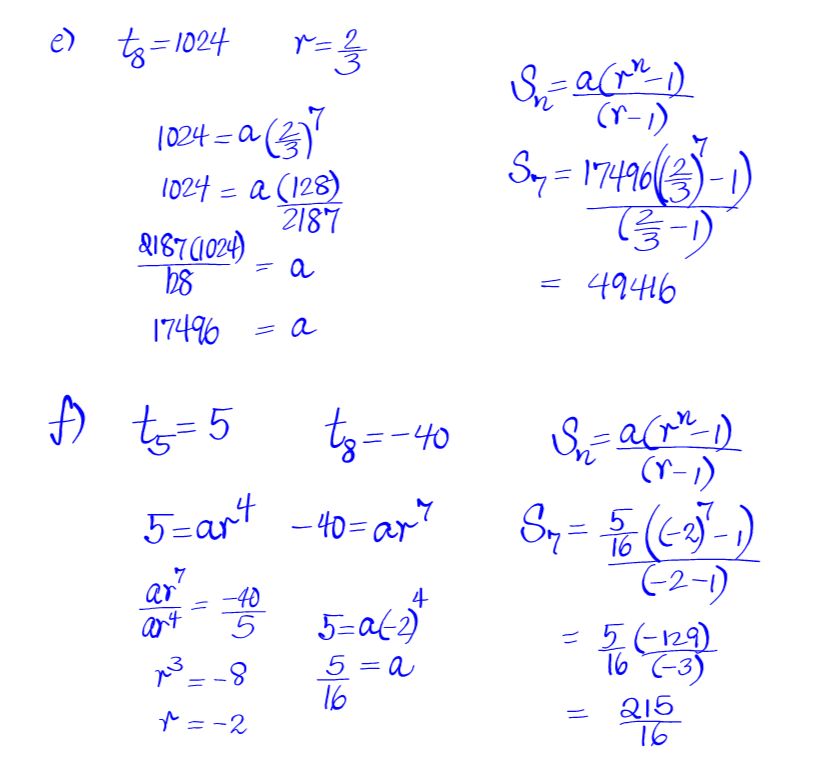 e) t₈ = 1024 r = 2/3
1024 = a(2/3)⁷
1024 = a(128)/2187
2187(1024)/128 = a
17496 = a
Sₙ = a(rⁿ-1)/(r-1)
S₇ = 17496((2/3)⁷-1)/(2/3-1)
= 49416
f) t₅ = 5 t₈ = -40
5 = ar⁴ -40 = ar⁷
ar⁷/ar⁴ = -40/5
r³ = -8
r = -2
5 = a(-2)⁴
5/16 = a
Sₙ = a(rⁿ-1)/(r-1)
S₇ = 5/16((-2)⁷-1)/(-2-1)
= 5/16 (-129)/(-3)
= 215/16